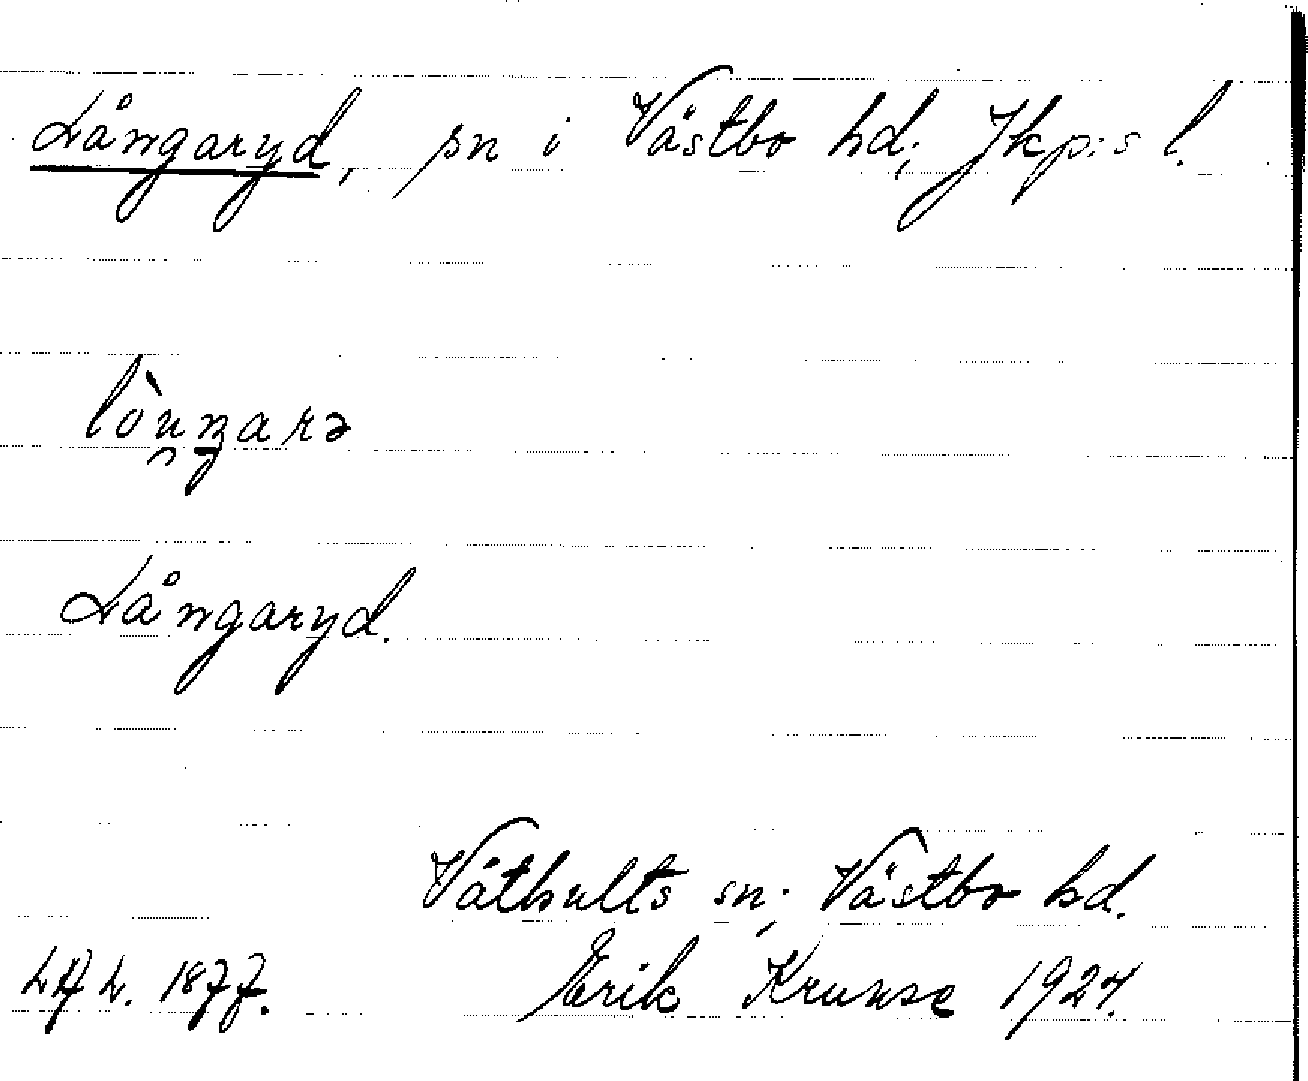 Långaryd, sn i Västbo hd; Jkp:s l.
lòu̯ŋarə
Långaryd.
Våthults sn; Västbo hd.
1877. Erik Krunse 1927.